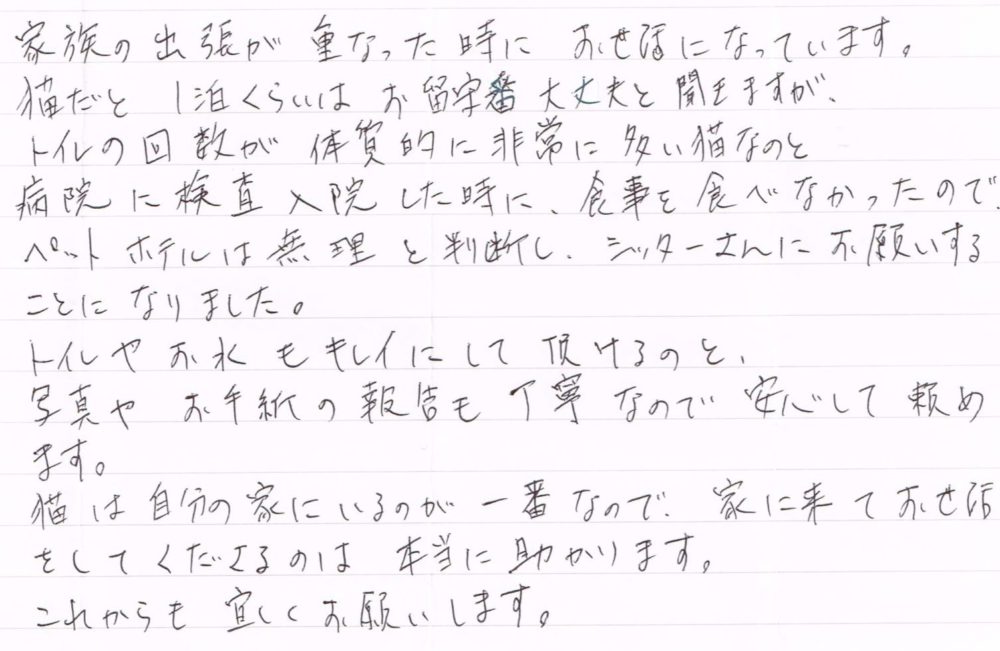 家族の出張が重なった時にお世話になっています。
猫だと1泊くらいはお留守番大丈夫と聞きますが、
トイレの回数が体質的に非常に多い猫なのと
病院に検査入院した時に、食事を食べなかったので、
ペットホテルは無理と判断し、シッターさんにお願いする
ことになりました。
トイレやお水もキレイにして頂けるのと、
写真やお手紙の報告も丁寧なので安心して頼め
ます。
猫は自分の家にいるのが一番なので、家に来てお世話
をしてくださるのは本当に助かります。
これからも宜しくお願いします。